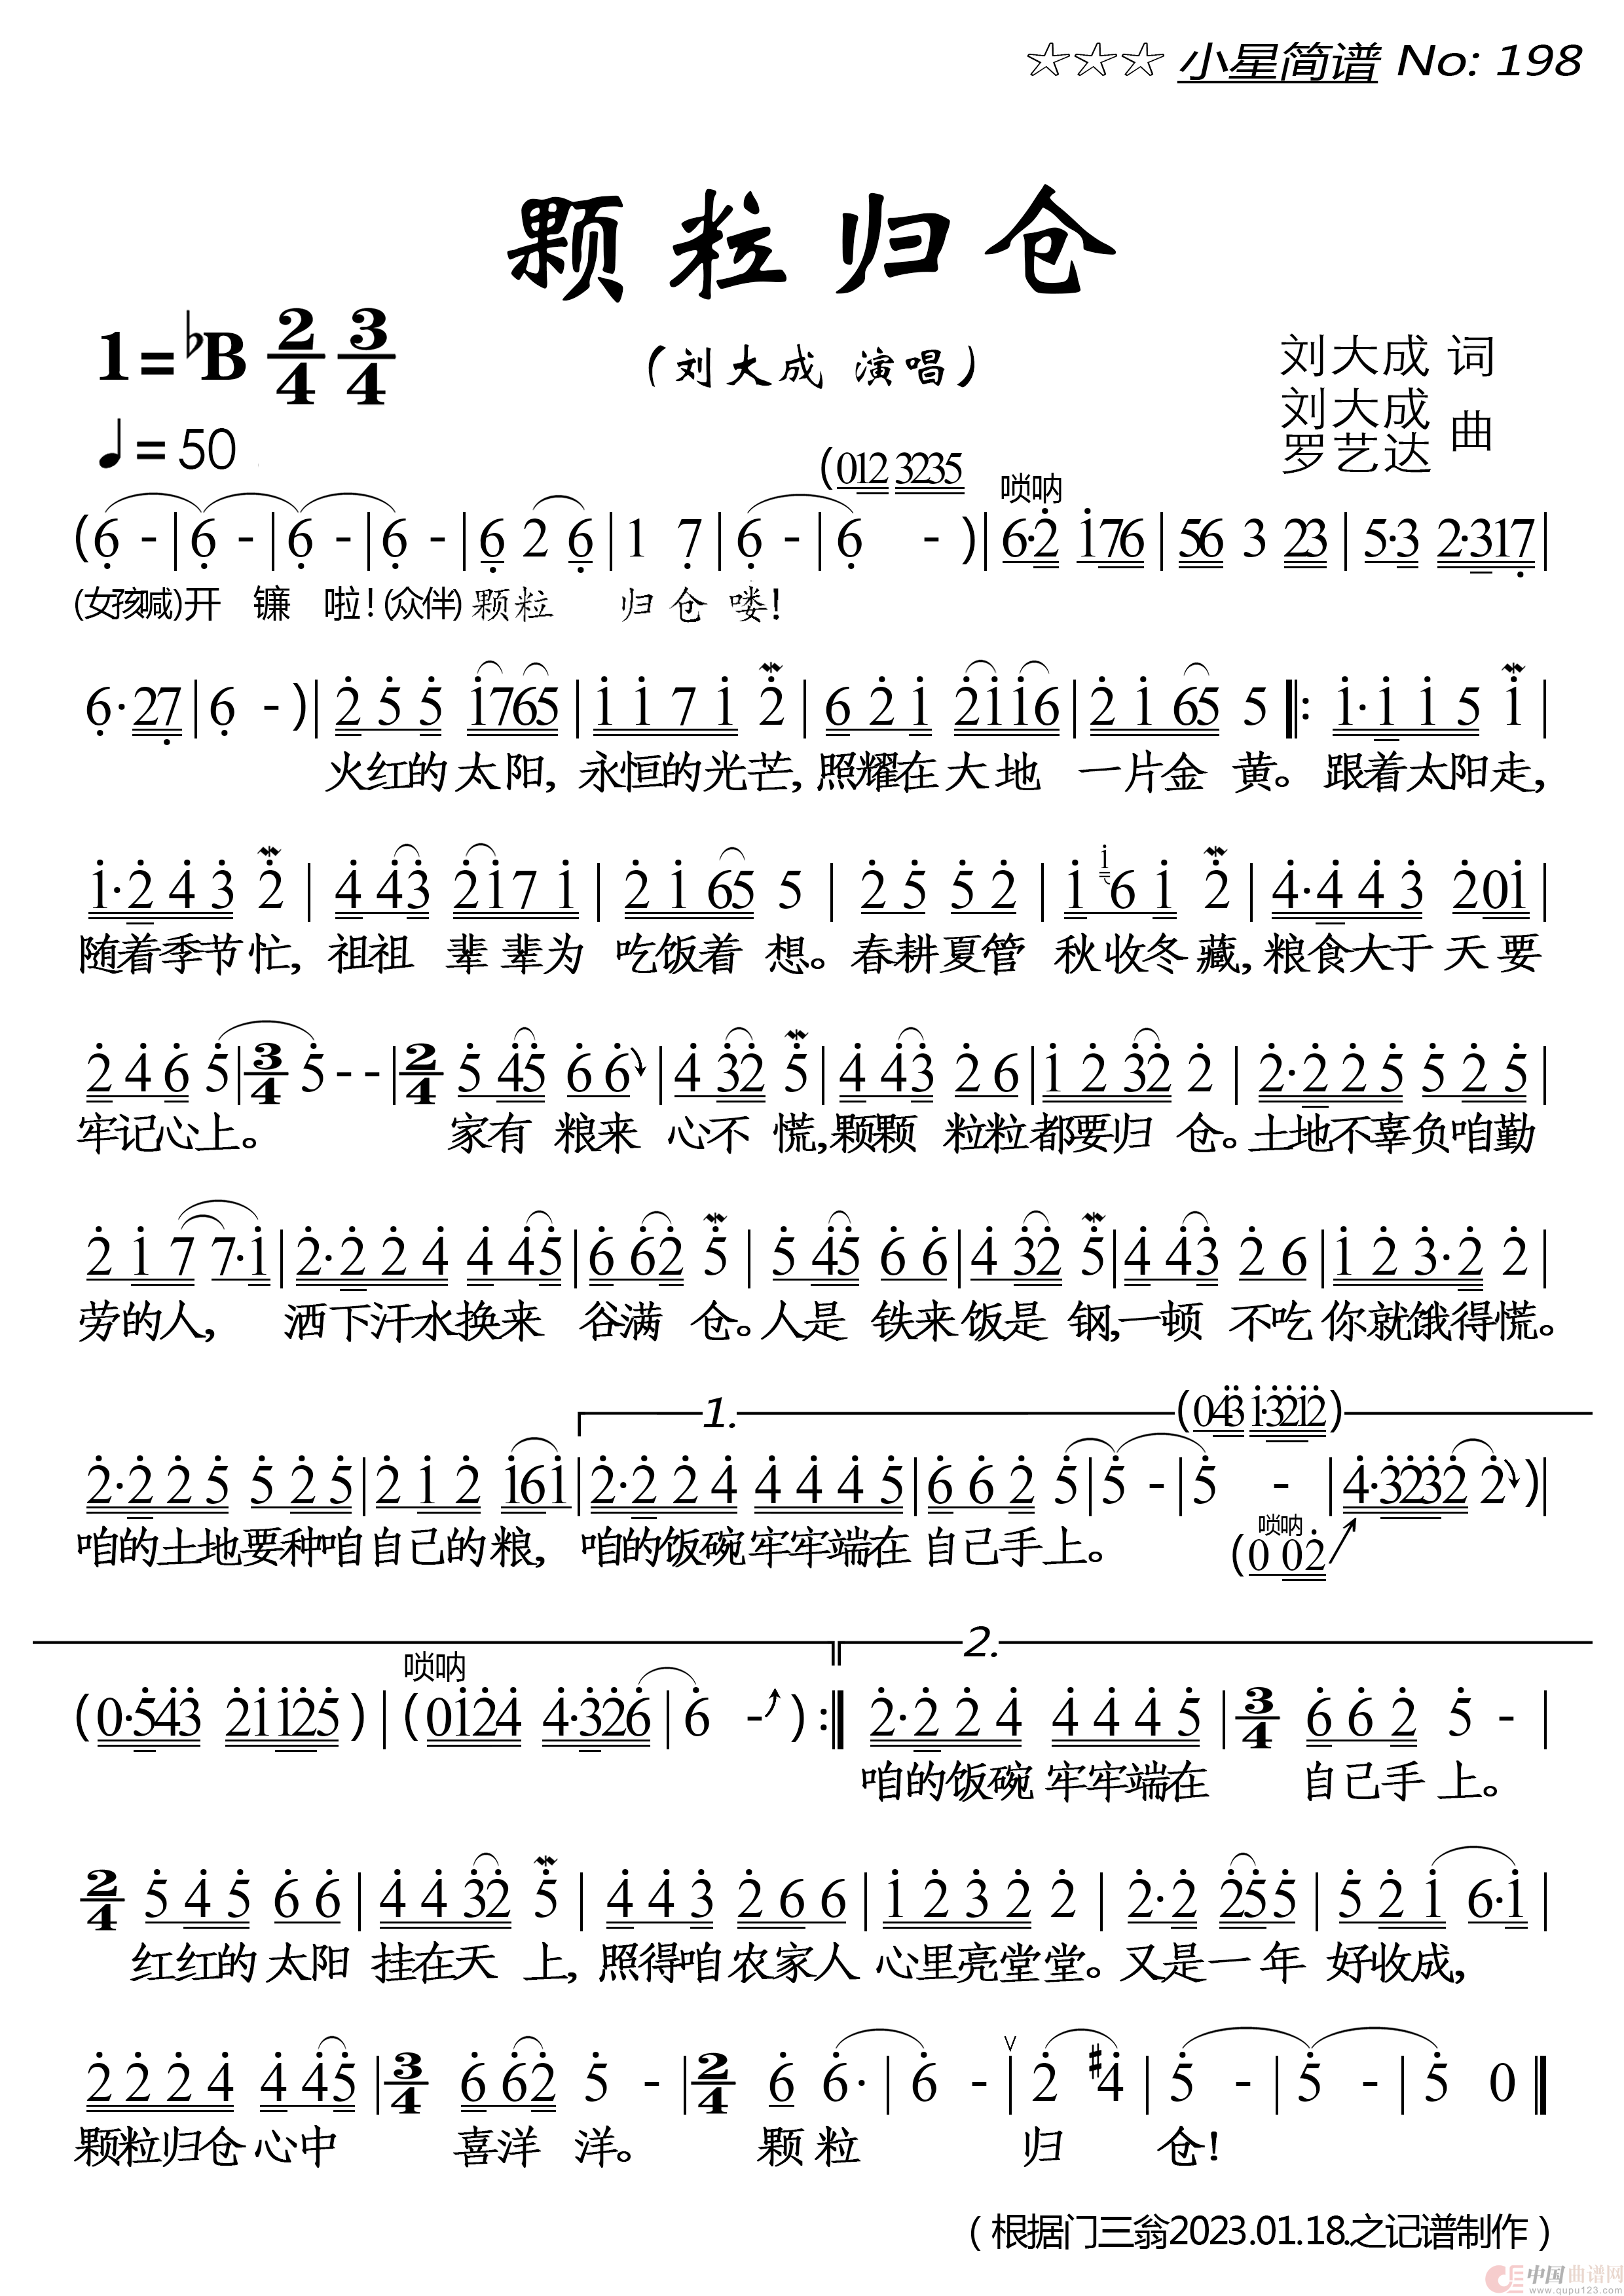 ☆☆☆ 小星简谱 No: 198
颗粒归仓
1=♭B 2/4 3/4
（刘大成 演唱）
刘大成 词
刘大成
罗艺达 曲
♩=50
(012 3235
唢呐
(6 - | 6 - | 6 - | 6 - | 6 2 6 | 1 7 | 6 - | 6 - )| 6·2 176 | 56 3 23 | 5·3 2·317 |
(女孩喊)开 镰 啦！(众伴) 颗粒 归仓 喽！
6·27 | 6 - )| 2 5 5 1765 | 1 1 7 1 2 | 6 2 1 2116 | 2 1 65 5 ‖: 1·1 1 5 1 |
火红的太阳, 永恒的光芒, 照耀在大地 一片金 黄。跟着太阳走,
1·2 4 3 2 | 4 43 217 1 | 2 1 65 5 | 2 5 5 2 | 1 i6 1 2 | 4·4 4 3 201 |
随着季节忙, 祖祖 辈辈为 吃饭着 想。春耕夏管 秋收冬藏, 粮食大于天要
2 4 6 5 | 3/4 5 - - | 2/4 5 45 6 6 | 4 32 5 | 4 43 2 6 | 1 2 32 2 | 2·2 2 5 5 2 5 |
牢记心上。 家有 粮来 心不 慌, 颗颗 粒粒都要归 仓。土地不辜负咱勤
2 1 7 7·1 | 2·2 2 4 4 45 | 6 62 5 | 5 45 6 6 | 4 32 5 | 4 43 2 6 | 1 2 3·2 2 |
劳的人, 洒下汗水换来 谷满 仓。人是 铁来饭是 钢, 一顿 不吃你就饿得慌。
1. (043 1·3212)
2·2 2 5 5 2 5 | 2 1 2 161 | 2·2 2 4 4 4 4 5 | 6 6 2 5 | 5 - | 5 - | 4·3232 2 )|
咱的土地要种咱自己的粮, 咱的饭碗牢牢端在自己手上。
唢呐
(0 02
2.
唢呐
(0·543 21125) | (0124 4·326 | 6 - ) :‖ 2·2 2 4 4 4 4 5 | 3/4 6 6 2 5 - |
咱的饭碗 牢牢端在 自己手 上。
2/4 5 4 5 6 6 | 4 4 32 5 | 4 4 3 2 6 6 | 1 2 3 2 2 | 2·2 255 | 5 2 1 6·1 |
红红的太阳 挂在天 上, 照得咱农家人 心里亮堂堂。又是一年 好收成,
2 2 2 4 4 45 | 3/4 6 62 5 - | 2/4 6 6· | 6 - | 2 #4 | 5 - | 5 - | 5 0 ‖
颗粒归仓心中 喜洋 洋。 颗 粒 归 仓！
（根据门三翁2023.01.18.之记谱制作）
中国曲谱网
www.qupu123.com